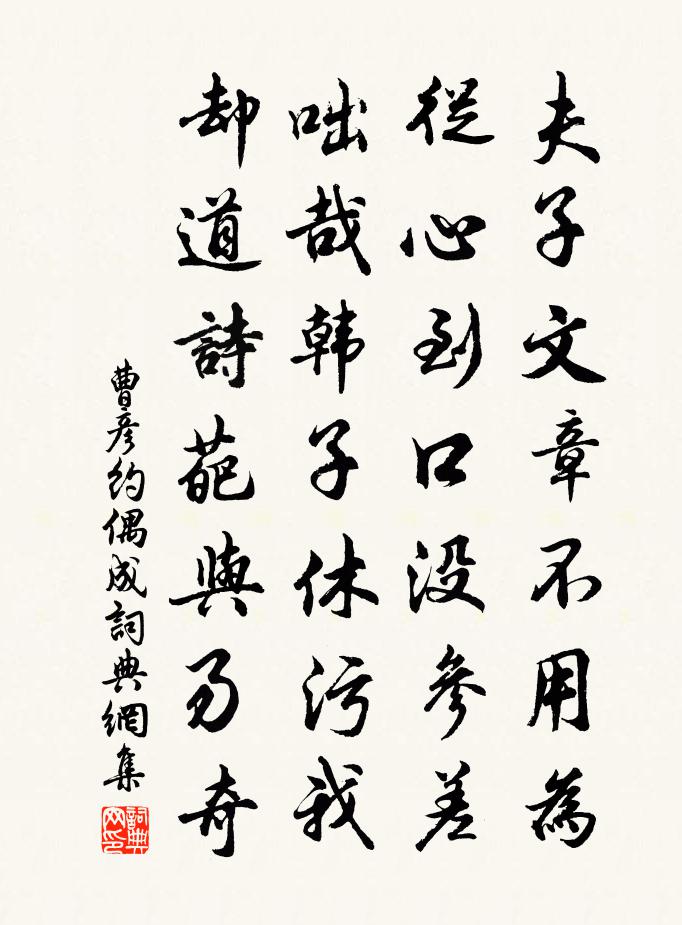 夫子文章不用為
從心到口没參差
咄哉韩子休污我
却道詩葩與易奇
曹彦約偶成詞典網集
詞典网印